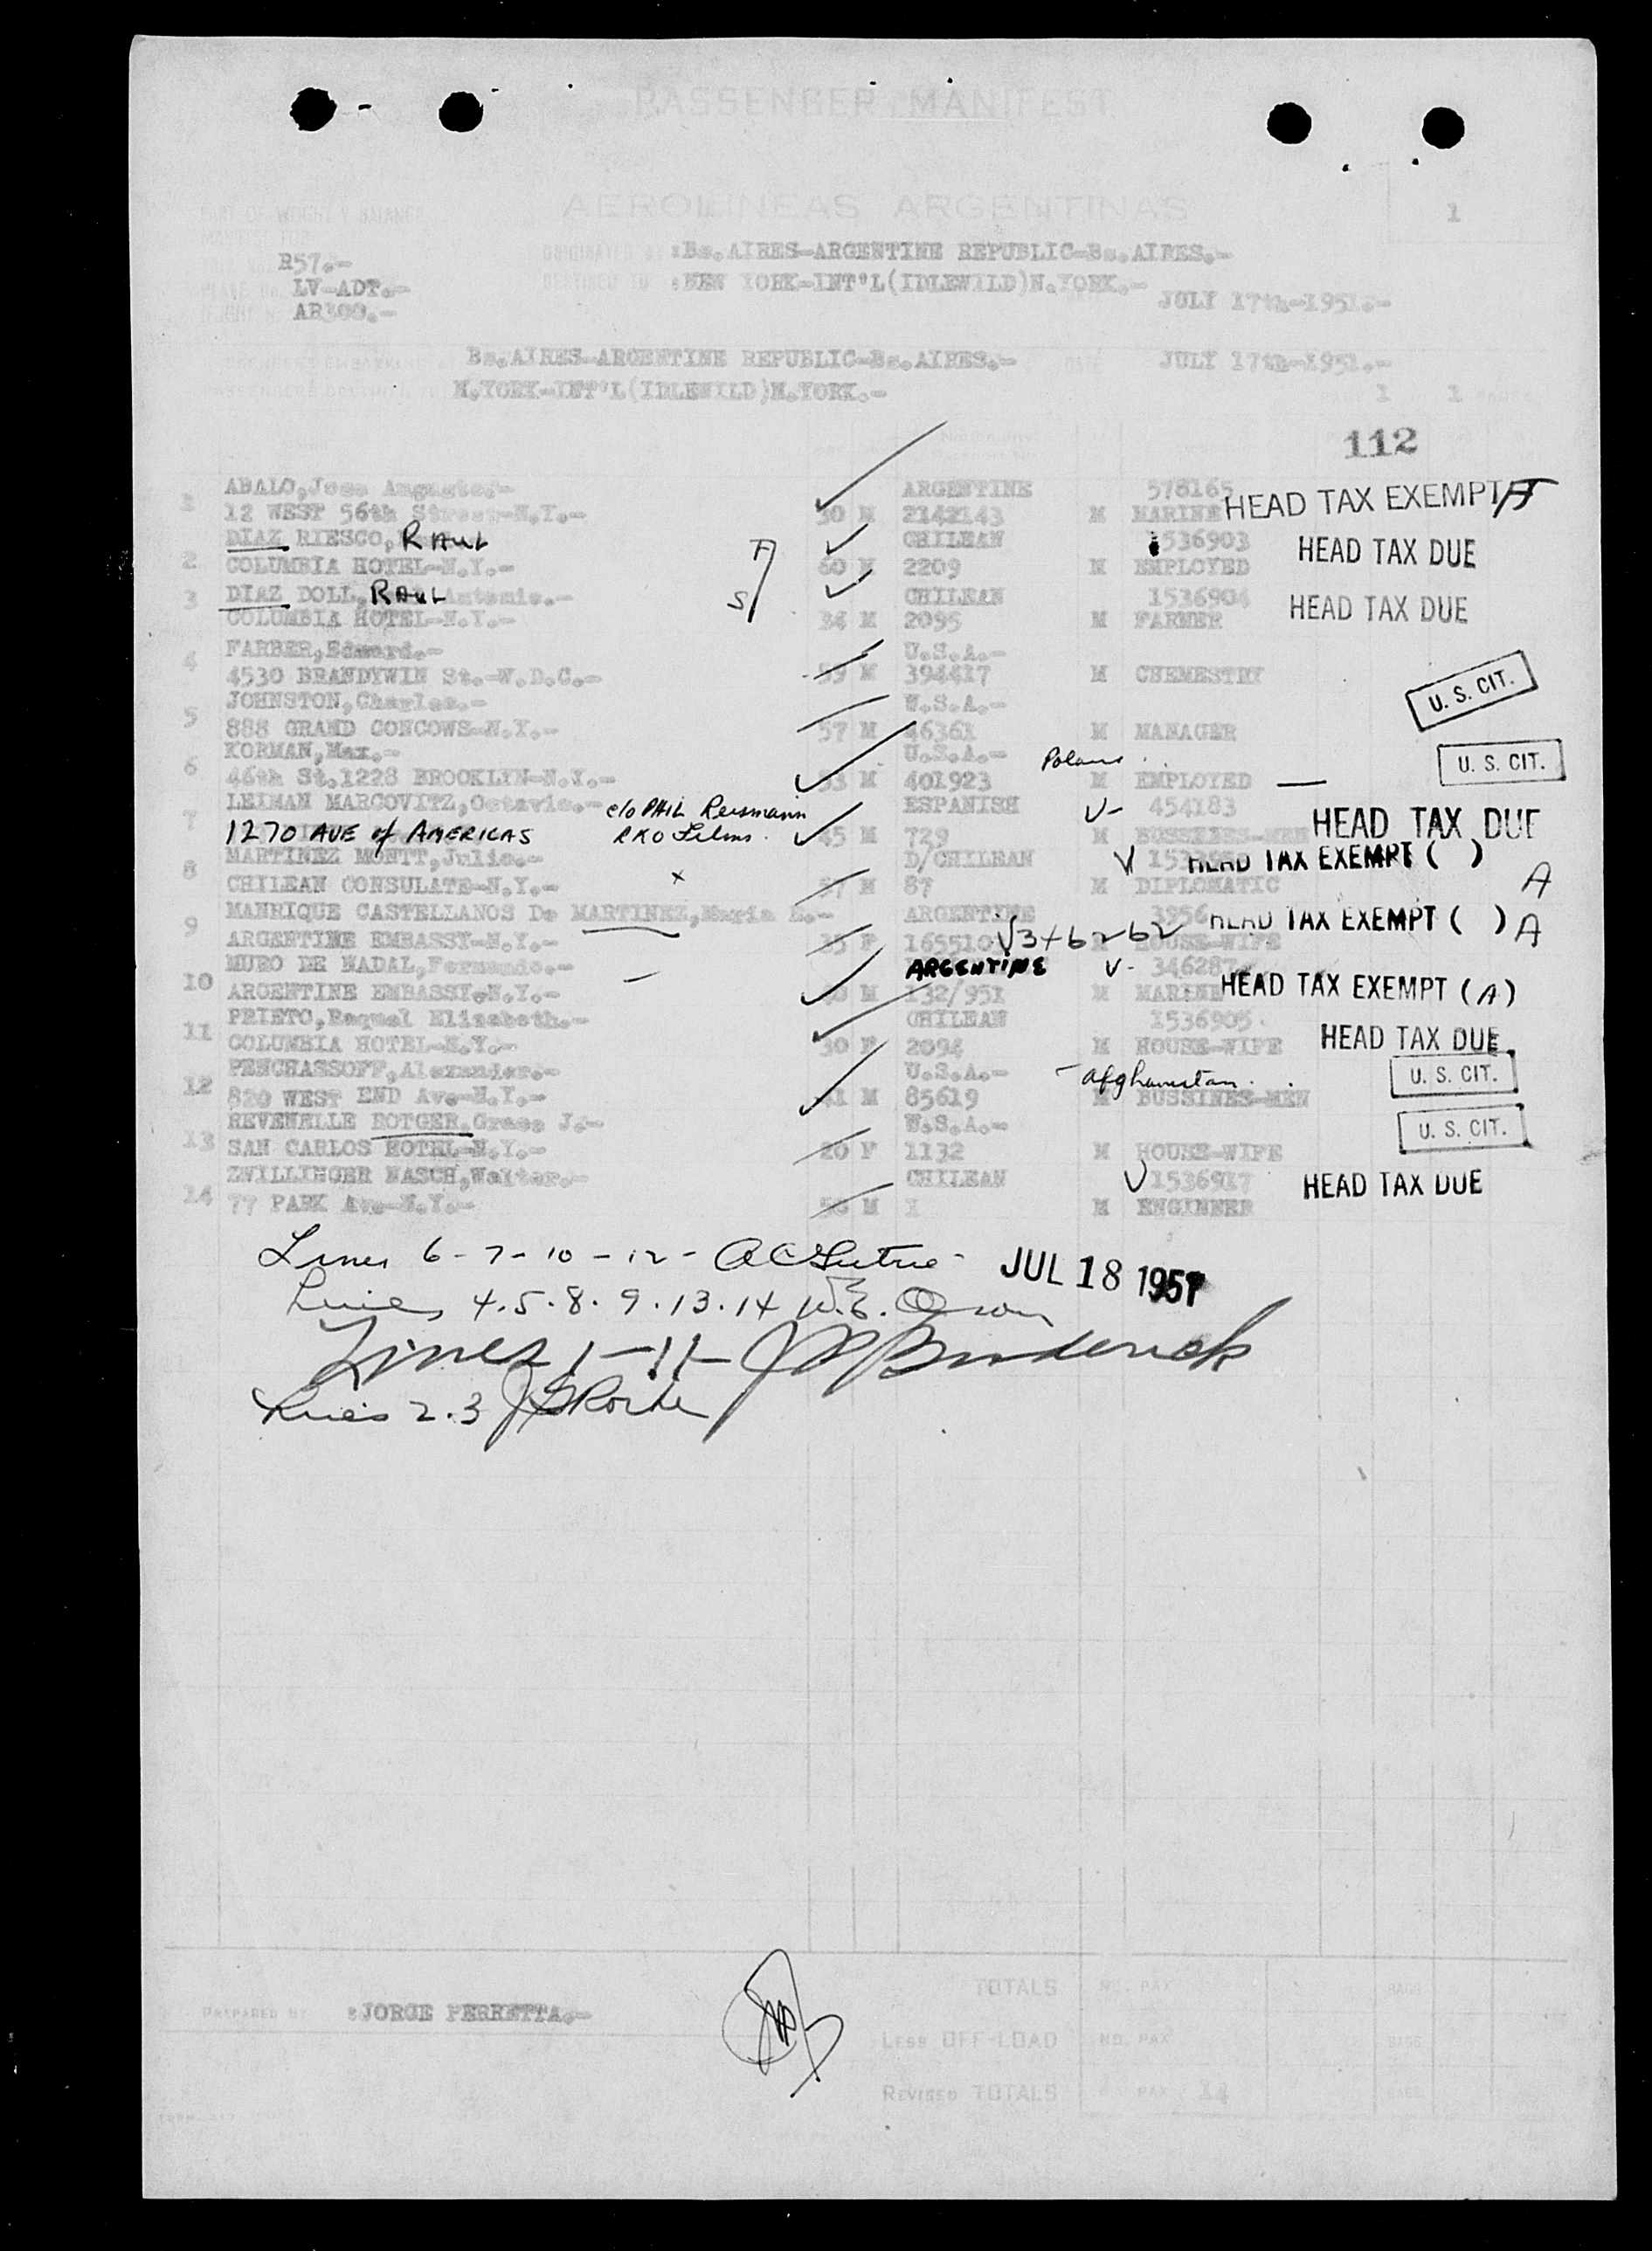 PASSENGER MANIFEST
AEROLINEAS ARGENTINAS 1
ORIGINATED AT :Bs.AIRES-ARGENTINE REPUBLIC-Bs.AIRES.-
R57.-
DESTINED TO :NEW YORK-INT'L(IDLEWILD)N.YORK.-
LV-ADT.-
JULY 17th-1951.-
AR300.-
Bs.AIRES-ARGENTINE REPUBLIC-Bs.AIRES.- DATE JULY 17th-1951.-
N.YORK-INT'L(IDLEWILD)N.YORK.- 1 1
112
ABALO,Jose Augusto.- ARGENTINE 578165
1 12 WEST 56th Street-N.Y.- 30 M 2142143 M MARINE HEAD TAX EXEMPT
DIAZ RIESCO, RAUL CHILEAN 1536903
2 COLUMBIA HOTEL-N.Y.- F 60 M 2209 M EMPLOYED HEAD TAX DUE
3 DIAZ DOLL, RAUL Antonio.- S CHILEAN 1536904 HEAD TAX DUE
COLUMBIA HOTEL-N.Y.- 34 M 2095 M FARMER
FARBER,Edward.- U.S.A.-
4 4530 BRANDYWIN St.-W.D.C.- 59 M 394417 M CHEMESTRY U. S. CIT.
JOHNSTON,Charles.- U.S.A.-
5 888 GRAND CONCOWS-N.Y.- 57 M 46361 M MANAGER
KORMAN,Max.- U.S.A.- Poland U. S. CIT.
6 46th St.1228 BROOKLIN-N.Y.- 53 M 401923 M EMPLOYED —
LEIMAN MARCOVITZ,Octavio.- c/o PHIL Reismann ESPANISH V- 454183
7 1270 AVE of AMERICAS RKO Films. 45 M 729 M BUSSINES-MEN HEAD TAX DUE
MARTINEZ MONTT,Julio.- D/CHILEAN HEAD TAX EXEMPT ( )
8 CHILEAN CONSULATE-N.Y.- x 57 M 87 M DIPLOMATIC A
MANRIQUE CASTELLANOS De MARTINEZ,Maria E.- ARGENTINE 3956 HEAD TAX EXEMPT ( ) A
9 ARGENTINE EMBASSY-N.Y.- 35 F HOUSE-WIFE
MURO DE NADAL,Fernando.- ARGENTINE V- 346287
10 ARGENTINE EMBASSY-N.Y.- 40 M 132/951 M MARINE HEAD TAX EXEMPT (A)
PRIETO,Raquel Elisabeth.- CHILEAN 1536905
11 COLUMBIA HOTEL-N.Y.- 30 F 2094 M HOUSE-WIFE HEAD TAX DUE
PENCHASSOFF,Alexander.- U.S.A.- - Afghanistan. U. S. CIT.
12 820 WEST END Ave-N.Y.- 41 M 85619 M BUSSINES-MEN
REVENELLE ROTGER,Grace J.- U.S.A.- U. S. CIT.
13 SAN CARLOS HOTEL-N.Y.- 20 F 1132 M HOUSE-WIFE
ZWILLINGER NASCH,Walter.- CHILEAN 1536917 HEAD TAX DUE
14 77 PARK Ave-N.Y.- 56 M 1 M ENGINEER
Lines 6-7-10-12-
JUL 18 1951
Lines 4.5.8.9.13.14
Lines 1-11- Broderick
Lines 2.3
TOTALS NO. PAX BAGS
PREPARED BY :JORGE PERRETTA.-
LESS OFF-LOAD NO. PAX BAGS
REVISED TOTALS PAX 14 BAGS